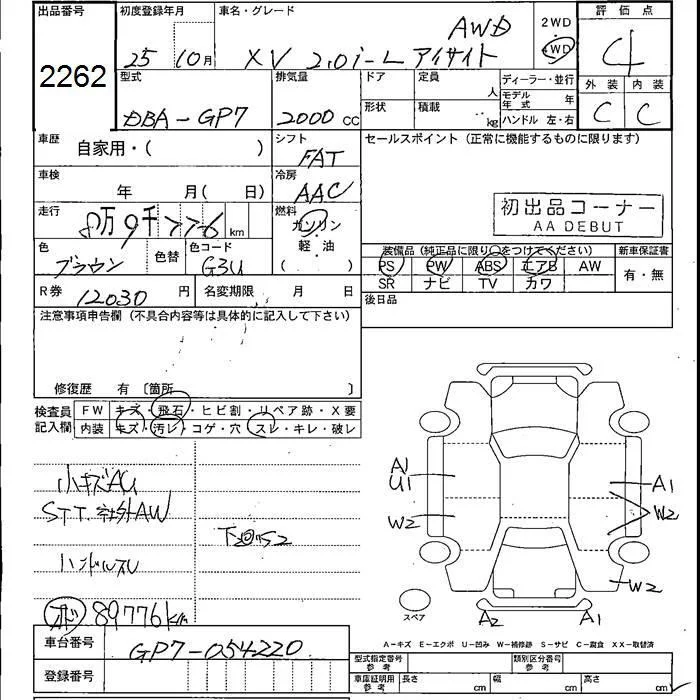 出品番号 初度登録年月 車名・グレード AWD 2WD 評価点
2262 25 10月 XV 2.0i-L アイサイト 4WD 4
型式 排気量 ドア 定員 人 ディーラー・並行 外装 内装
DBA-GP7 2000 cc 形状 積載 kg モデル年式 年 ハンドル 左・右 C C
車歴 自家用・( ) シフト FAT セールスポイント (正常に機能するものに限ります)
車検 年 月( 日) 冷房 AAC
初出品コーナー
AA DEBUT
走行 8万9千776 km 燃料 ガソリン 軽油 ( )
色 ブラウン 色替 色コード G3U
装備品 (純正品に限り○をつけてください) 新車保証書
PS PW ABS エアB AW 有・無
SR ナビ TV カワ
R券 12030 円 名変期限 月 日 後日品
注意事項申告欄 (不具合内容等は具体的に記入して下さい)
修復歴 有 〔箇所 〕
検査員記入欄 FW キズ・飛石・ヒビ割・リペア跡・X要
内装 キズ・汚レ・コゲ・穴・スレ・キレ・破レ
小キズAU
STT. 社外AW
下回S2
ハンドルスレ
89776km
A1
U1
W2
A1
W2
W2
スペア
A2 A1
A-キズ E-エクボ U-凹み W-補修跡 S-サビ C-腐食 XX-取替済
車台番号 GP7-054220
型式指定番号 参考 類別区分番号 参考
登録番号
車庫証明用 参考 長さ cm 幅 cm 高さ cm